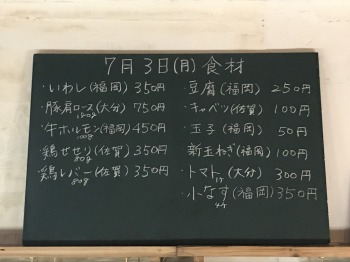 7月3日(月)食材
・いわし(福岡)350円
・豚肩ロース(大分)750円
・牛ホルモン(福岡)450円
100g
・鶏せせり(佐賀)350円
80g
・鶏レバー(佐賀)350円
80g
・豆腐(福岡)250円
・キャベツ(佐賀)100円
・玉子(福岡)50円
新玉ねぎ(福岡)100円
・トマト(大分)300円
・小なす(福岡)350円